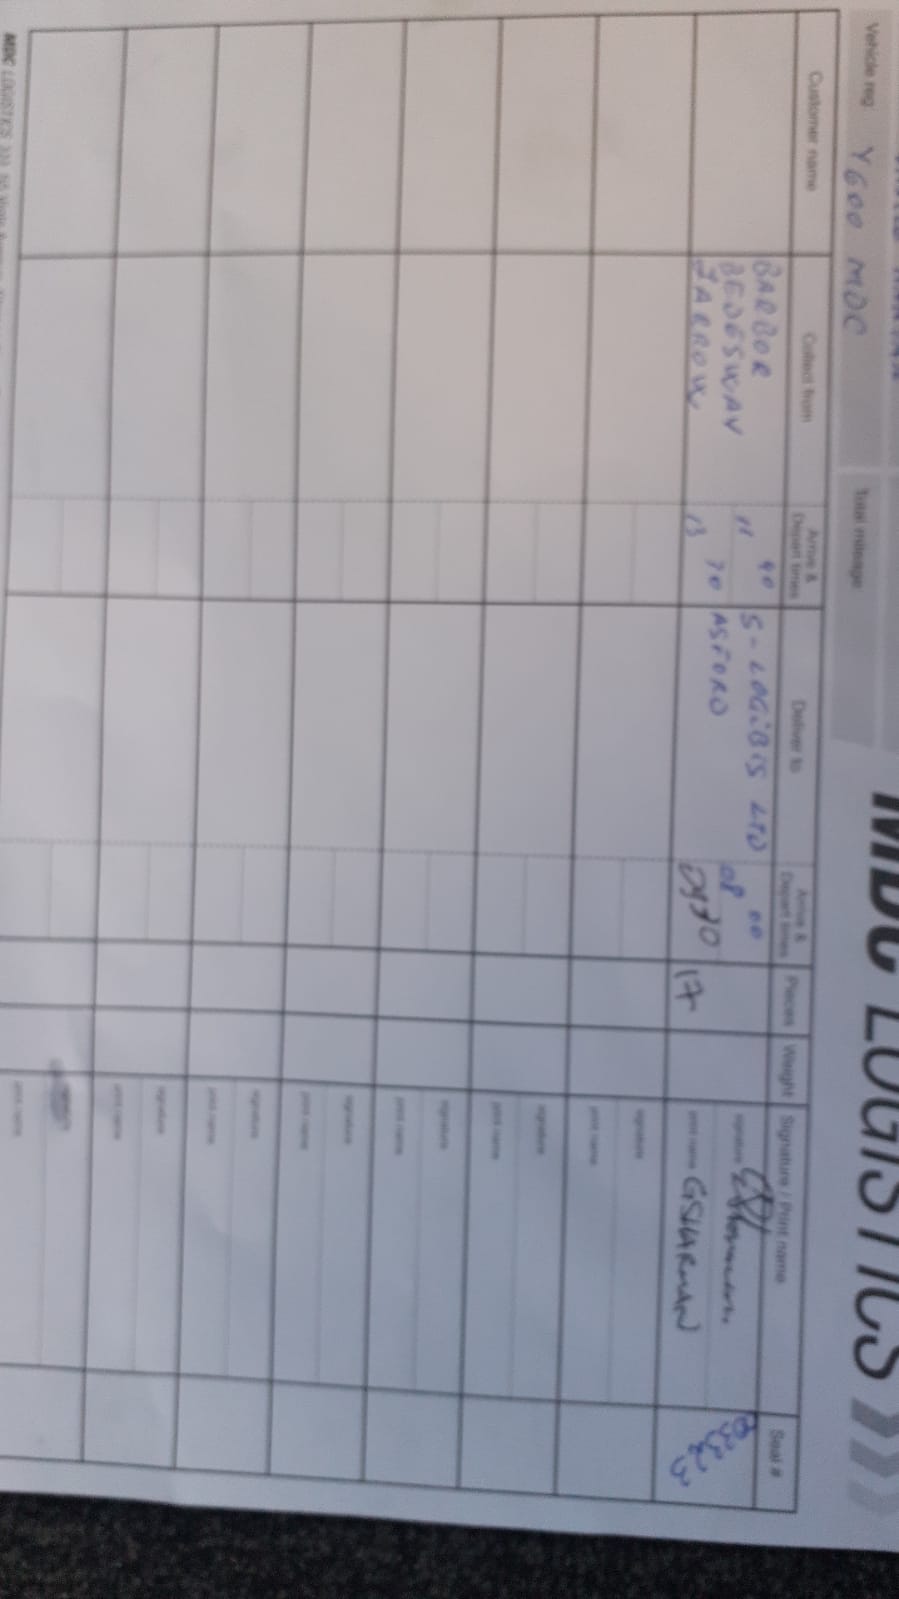 Vehicle reg Y600 MDC
Total mileage
MDC LOGISTICS
Customer name
Collect from
Arrive &
Depart times
Deliver to
Arrive &
Depart times
Pieces
Weight
Signature / Print name
Seal #
BARBOR
BEDESWAY
JARROW
11 40
13 10
S-LOGIBIS LTD
ASFORD
08 00
0930
17
signature
print name GSHARMAN
signature
print name
signature
print name
signature
print name
signature
print name
signature
print name
signature
print name
print name
MDC LOGISTICS